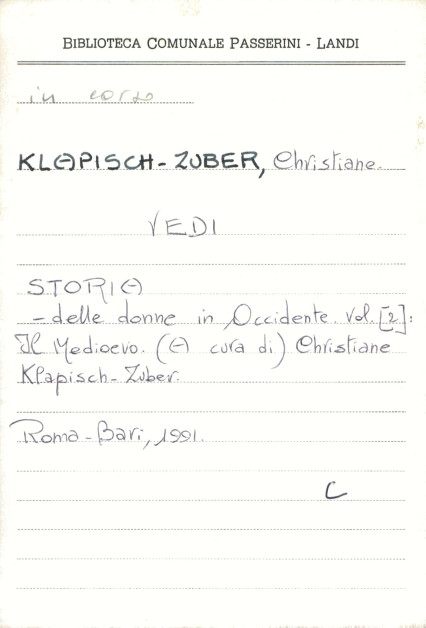 BIBLIOTECA COMUNALE PASSERINI - LANDI
in corso
KLAPISCH-ZUBER, Christiane.
VEDI
STORIA
- delle donne in Occidente. Vol. [2]:
Il Medioevo. (A cura di) Christiane
Klapisch-Zuber.
Roma-Bari, 1991.
C